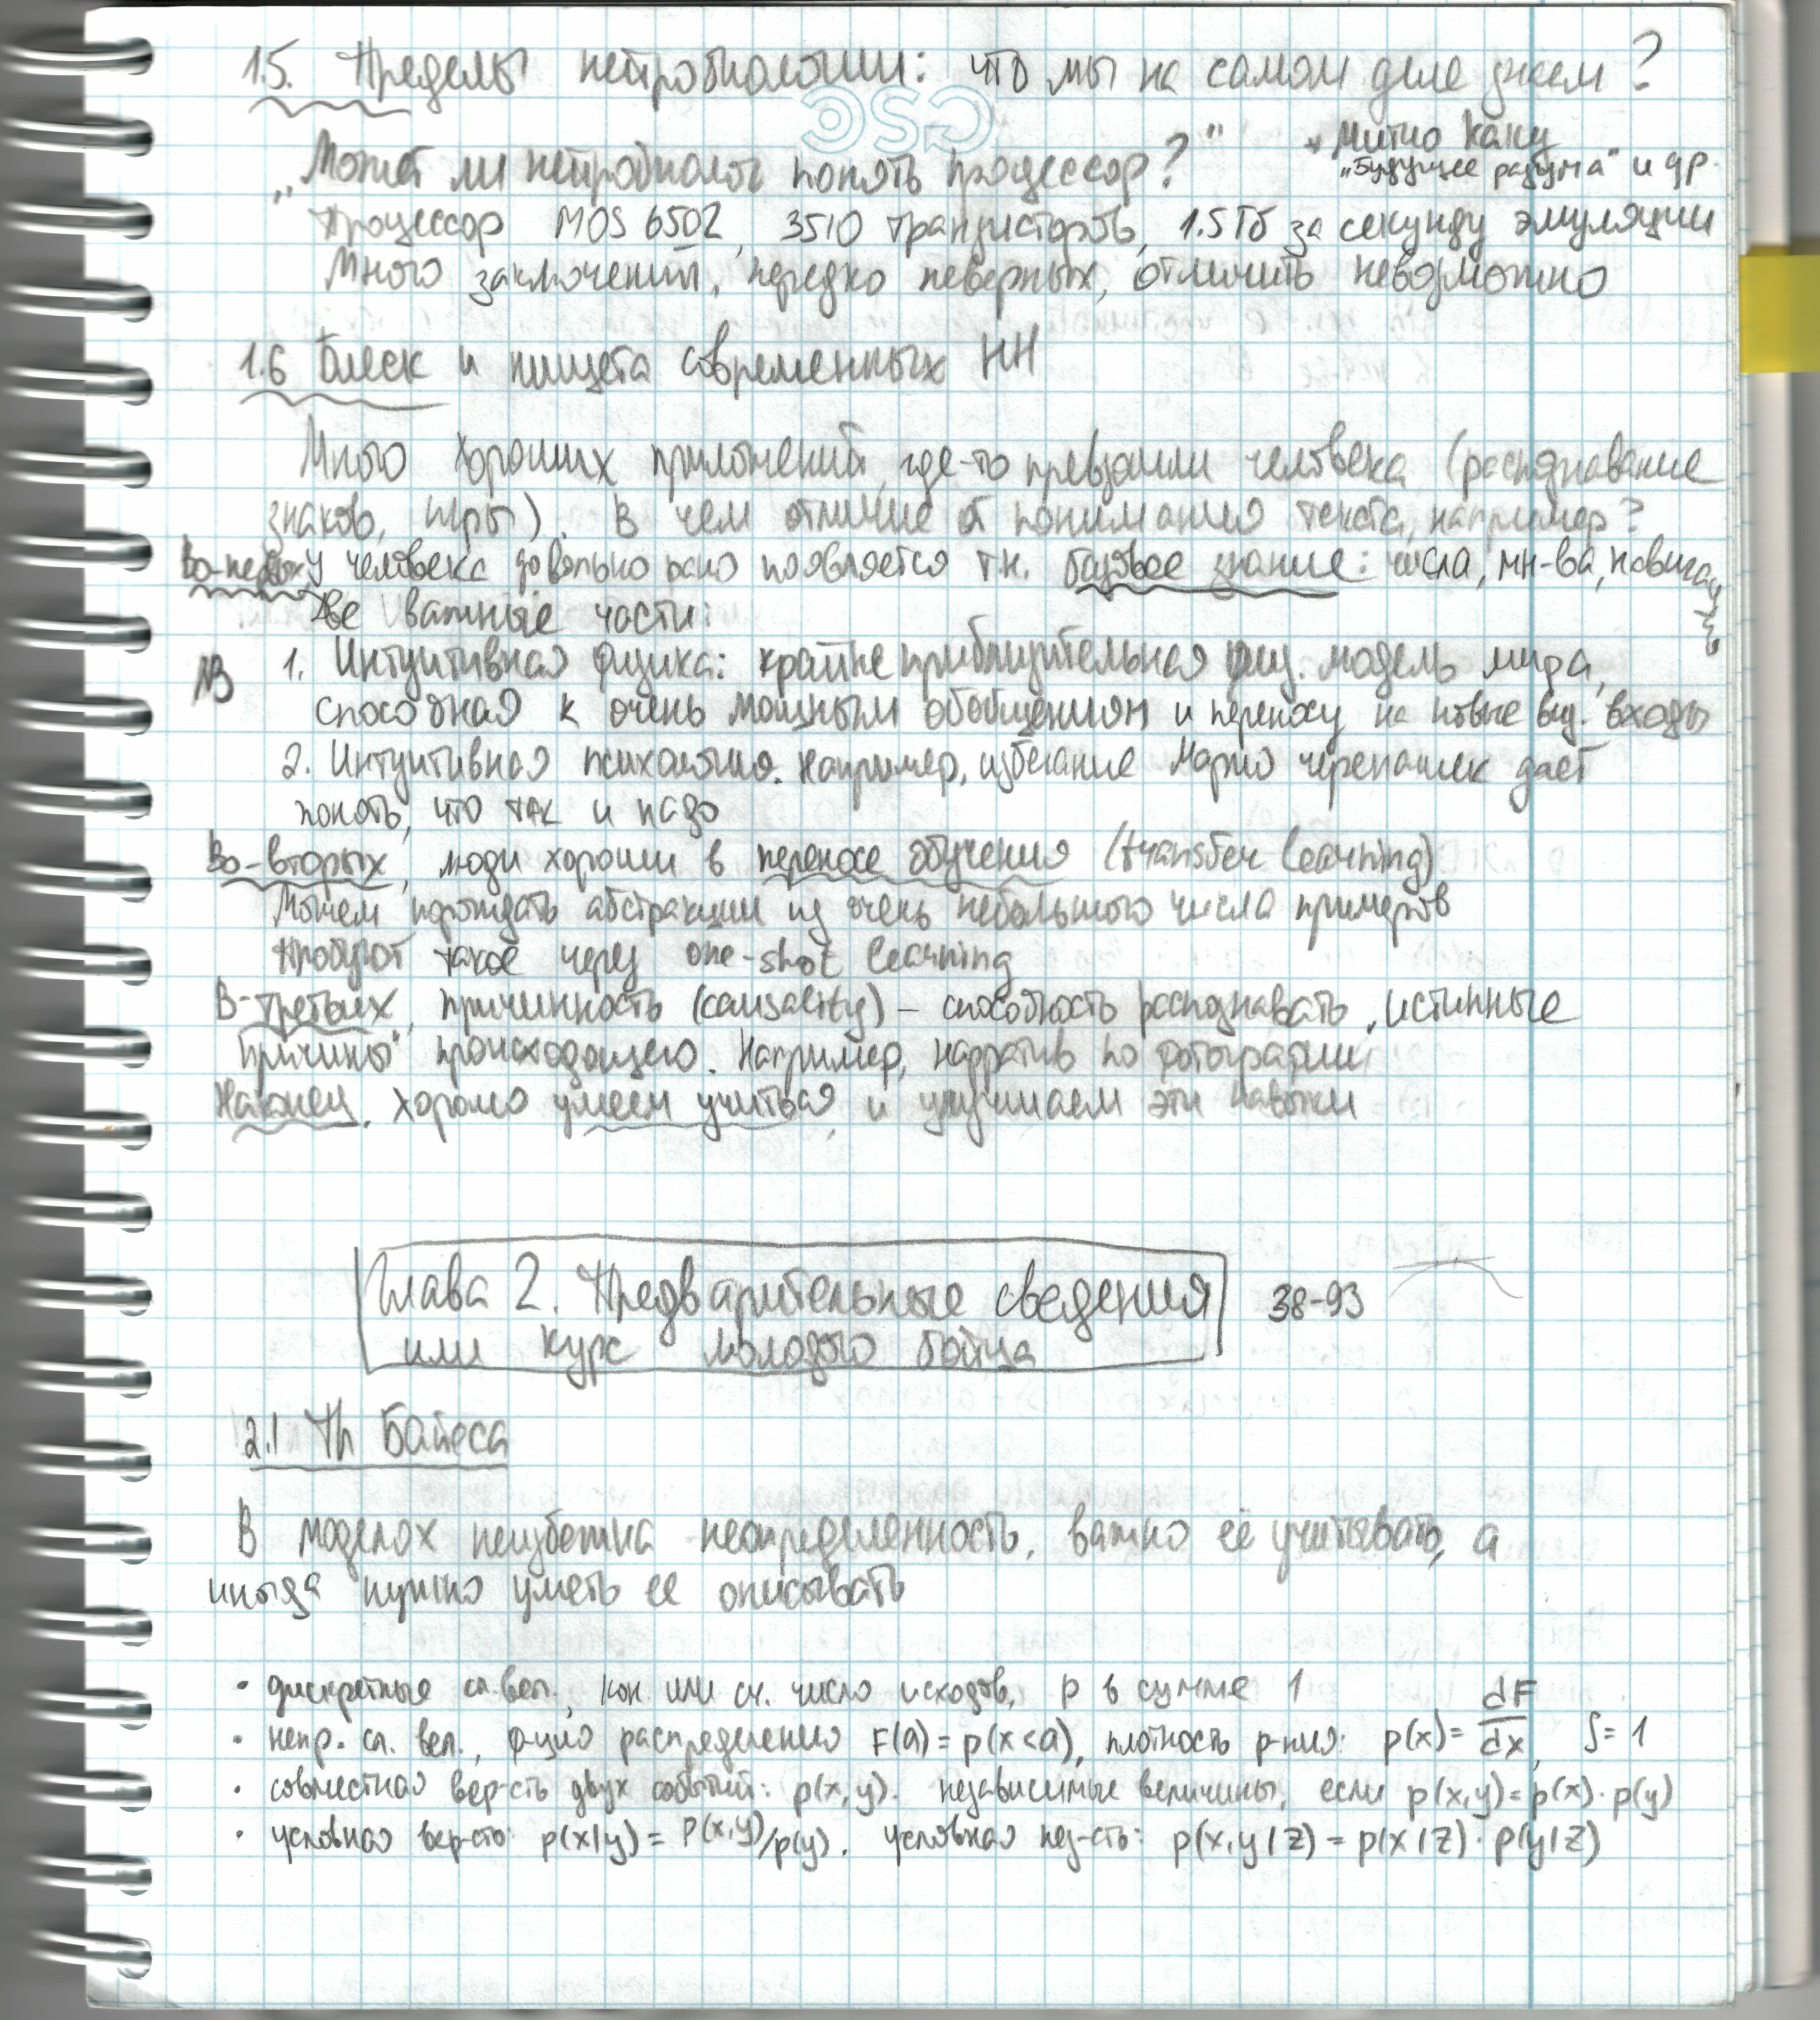 1.5. Пределы нейробиологии: что мы на самом деле знаем?
„Может ли нейробиолог понять процессор?"
+ Митио Каку
„Будущее разума" и др.
Процессор MOS 6502, 3510 транзисторов, 1.5 Гб за секунду эмуляции
Много заключений, нередко неверных, отличить невозможно
1.6 Блеск и нищета современных НН
Много хороших приложений, где-то превзошли человека (распознавание
знаков, игры). В чем отличие от понимания текста, например?
Во-первых, у человека довольно рано появляется т.н. базовое знание: числа, мн-ва, навигация
Две важные части:
NB
1. Интуитивная физика: крайне приблизительная физ. модель мира,
способная к очень мощным обобщениям и переносу на новые вид. входы
2. Интуитивная психология. Например, избегание Марио черепашек дает
понять, что так и надо
Во-вторых, люди хороши в переносе обучения (transfer learning)
Можем порождать абстракции из очень небольшого числа примеров
Пробуют такое через one-shot learning
В-третьих, причинность (causality) – способность распознавать „истинные
причины" происходящего. Например, нарратив по фотографии
Наконец, хорошо умеем учиться, и улучшаем эти навыки
Глава 2. Предварительные сведения
или курс молодого бойца
38-93
2.1 Th Байеса
В моделях неизбежна неопределенность, важно её учитывать, а
иногда нужно уметь ее описывать
• дискретные сл. вел., кон. или сч. число исходов, p в сумме 1
• непр. сл. вел., ф-ция распределения F(a) = p(x<a), плотность р-ния: p(x) = dF/dx, ∫ = 1
• совместная вер-сть двух событий: p(x,y). независимые величины, если p(x,y) = p(x)·p(y)
• условная вер-сть: p(x|y) = p(x,y)/p(y). условная нез-сть: p(x,y|z) = p(x|z)·p(y|z)